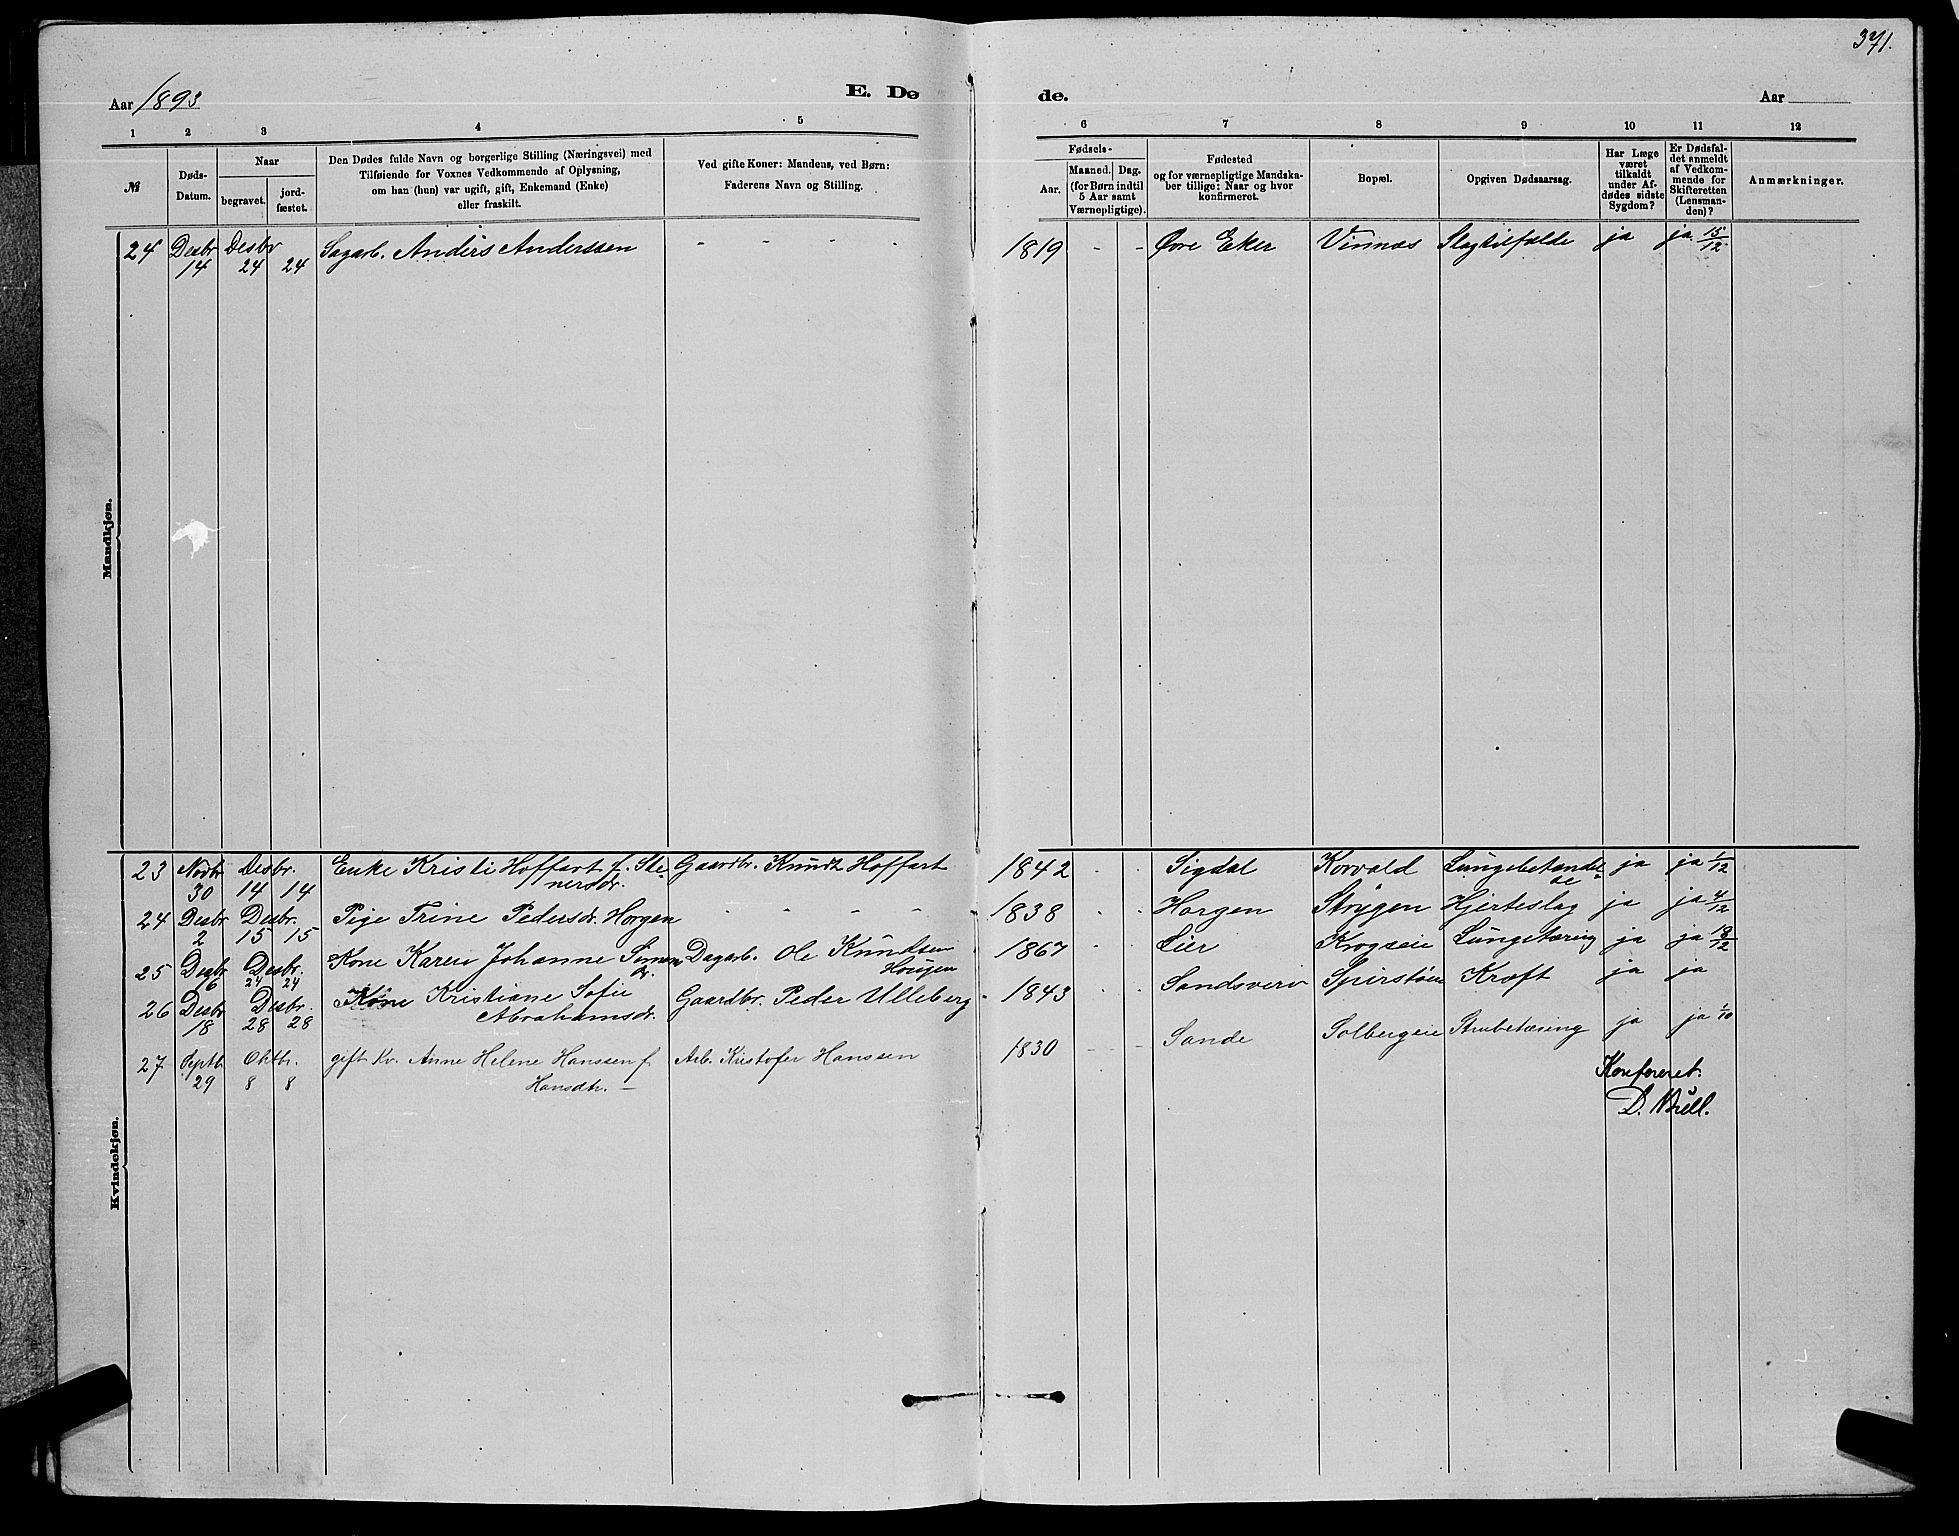 371.
Aar 1893
E. Dø
de.
Aar
1 2 3 4 5
6 7 8 9 10 11 12
№
Døds-
Datum.
Naar
begravet.
jord-
fæstet.
Den Dødes fulde Navn og borgerlige Stilling (Næringsvei) med
Tilføiende for Voxnes Vedkommende af Oplysning,
om han (hun) var ugift, gift, Enkemand (Enke)
eller fraskilt.
Ved gifte Koner: Mandens, ved Børn:
Faderens Navn og Stilling.
Fødsels-
Aar.
Maaned. Dag.
(for Børn indtil
5 Aar samt
Værnepligtige).
Fødested
og for værnepligtige Mandska-
ber tillige: Naar og hvor
konfirmeret.
Bopæl.
Opgiven Dødsaarsag.
Har Læge
været
tilkaldt
under Af-
dødes sidste
Sygdom?
Er Dødsfal-
det anmeldt
af Vedkom-
mende for
Skifteretten
(Lensman-
den)?
Anmærkninger.
Mandkjøn.
24 Desbr Desbr Sagarb. Anders Anderssen - - - - 1819 - - Øvre Eker Vinnæs Slagtilfælde ja ja 15/12
14 24 24
Kvindekjøn.
23 Novbr Desbr. Enke Kristi Hoffart f. Ste- Gaardbr. Knudt Hoffart 1842 - - Sigdal Korvald Lungebetændel- ja ja 1/12
30 14 14 nersdr. se
24 Desbr Desbr. Pige Trine Pedersdr. Horgen - - - - 1838 - - Horgen Strygen Hjerteslag ja ja 4/12
2 15 15
25 Desbr Desbr. Kone Karen Johanne Simons Dagarb. Ole Knudsen 1867 - - Lier Krogseie Lungetæring ja ja
6 24 24 dr. Hougen
26 Desbr Desbr. Kone Kristiane Sofie Gaardbr. Peder Ulleberg 1843 - - Sandsverv Spirstøen Kræft ja ja
18 28 28 Abrahamsdr.
27 Septb. Oktbr. gift Kv. Anne Helene Hanssen f. Arb. Kristofer Hanssen 1830 - - Sande Solbergeie Strubetæring ja ja 1/10
29 8 8 Hansdtr. -
Konfereret.
D. Bull.